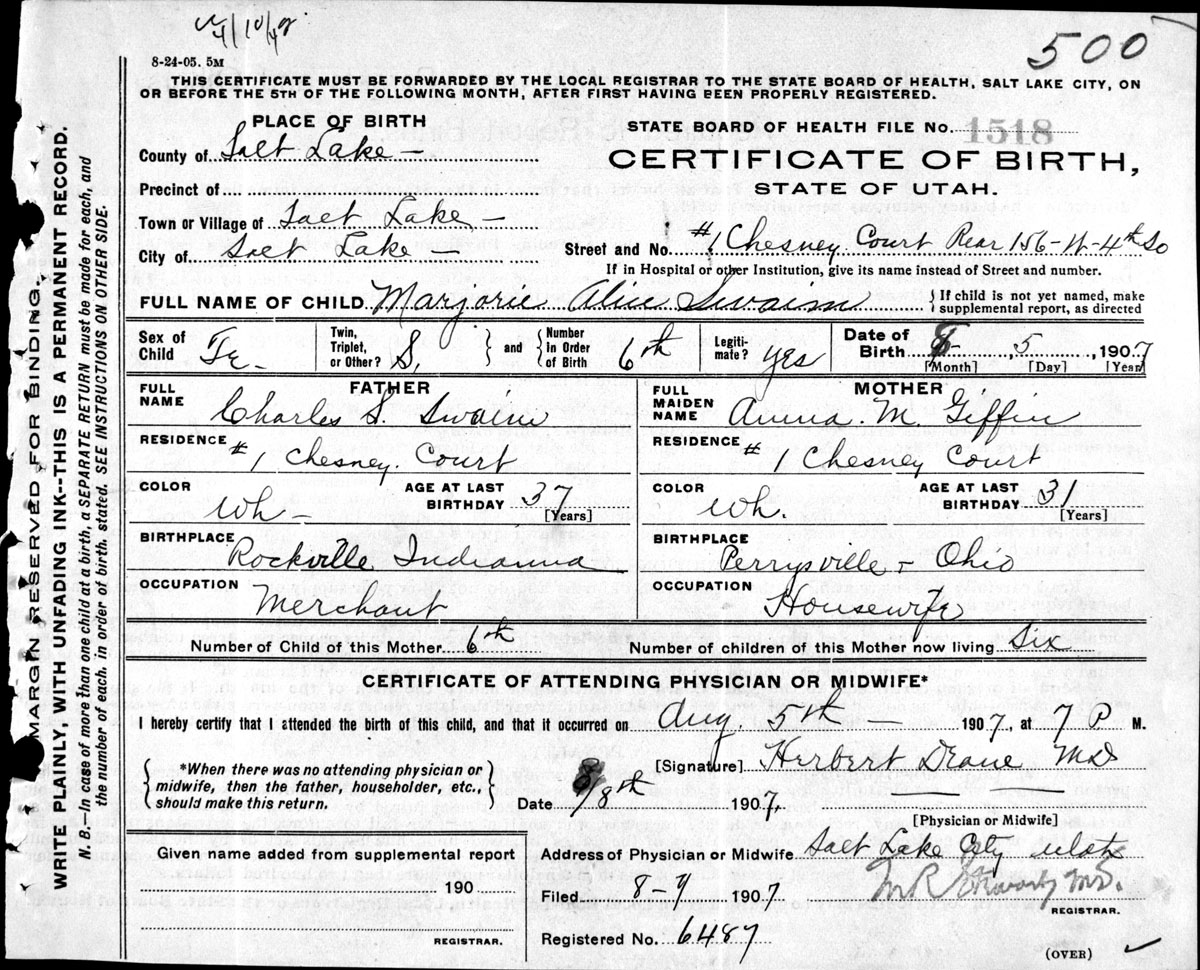 4/10/42
500
8-24-05. 5M
THIS CERTIFICATE MUST BE FORWARDED BY THE LOCAL REGISTRAR TO THE STATE BOARD OF HEALTH, SALT LAKE CITY, ON
OR BEFORE THE 5TH OF THE FOLLOWING MONTH, AFTER FIRST HAVING BEEN PROPERLY REGISTERED.
PLACE OF BIRTH
County of Salt Lake —
Precinct of
Town or Village of Salt Lake —
City of Salt Lake —
STATE BOARD OF HEALTH FILE NO. 1518
CERTIFICATE OF BIRTH,
STATE OF UTAH.
Street and No. #1 Chesney Court Rear 156-W-4th So
If in Hospital or other Institution, give its name instead of Street and number.
FULL NAME OF CHILD Marjorie Alice Swaim { If child is not yet named, make supplemental report, as directed
Sex of Child Fe- Twin, Triplet, or Other? S. } and { Number In Order of Birth 6th Legiti-mate? yes Date of Birth 8 5, 1907
[Month] [Day] [Year]
FATHER
FULL NAME Charles S. Swaim
RESIDENCE #1 Chesney Court
COLOR wh- AGE AT LAST BIRTHDAY 37 [Years]
BIRTHPLACE Rockville Indianna
OCCUPATION Merchant
MOTHER
FULL MAIDEN NAME Anna. M. Giffin
RESIDENCE #1 Chesney Court
COLOR wh. AGE AT LAST BIRTHDAY 31 [Years]
BIRTHPLACE Perrysville - Ohio
OCCUPATION Housewife
Number of Child of this Mother 6th Number of children of this Mother now living Six
CERTIFICATE OF ATTENDING PHYSICIAN OR MIDWIFE*
I hereby certify that I attended the birth of this child, and that it occurred on Aug. 5th — 1907, at 7 P M.
{ *When there was no attending physician or midwife, then the father, householder, etc., should make this return. }
[Signature] Herbert MD
Date 8/8th 1907.
[Physician or Midwife]
Given name added from supplemental report
190
REGISTRAR.
Address of Physician or Midwife Salt Lake City utah
Filed 8-9 1907
M.D.
REGISTRAR.
Registered No. 6487
(OVER)
MARGIN RESERVED FOR BINDING.
WRITE PLAINLY, WITH UNFADING INK--THIS IS A PERMANENT RECORD.
N. B.—In case of more than one child at a birth, a SEPARATE RETURN must be made for each, and
the number of each, in order of birth, stated. SEE INSTRUCTIONS ON OTHER SIDE.